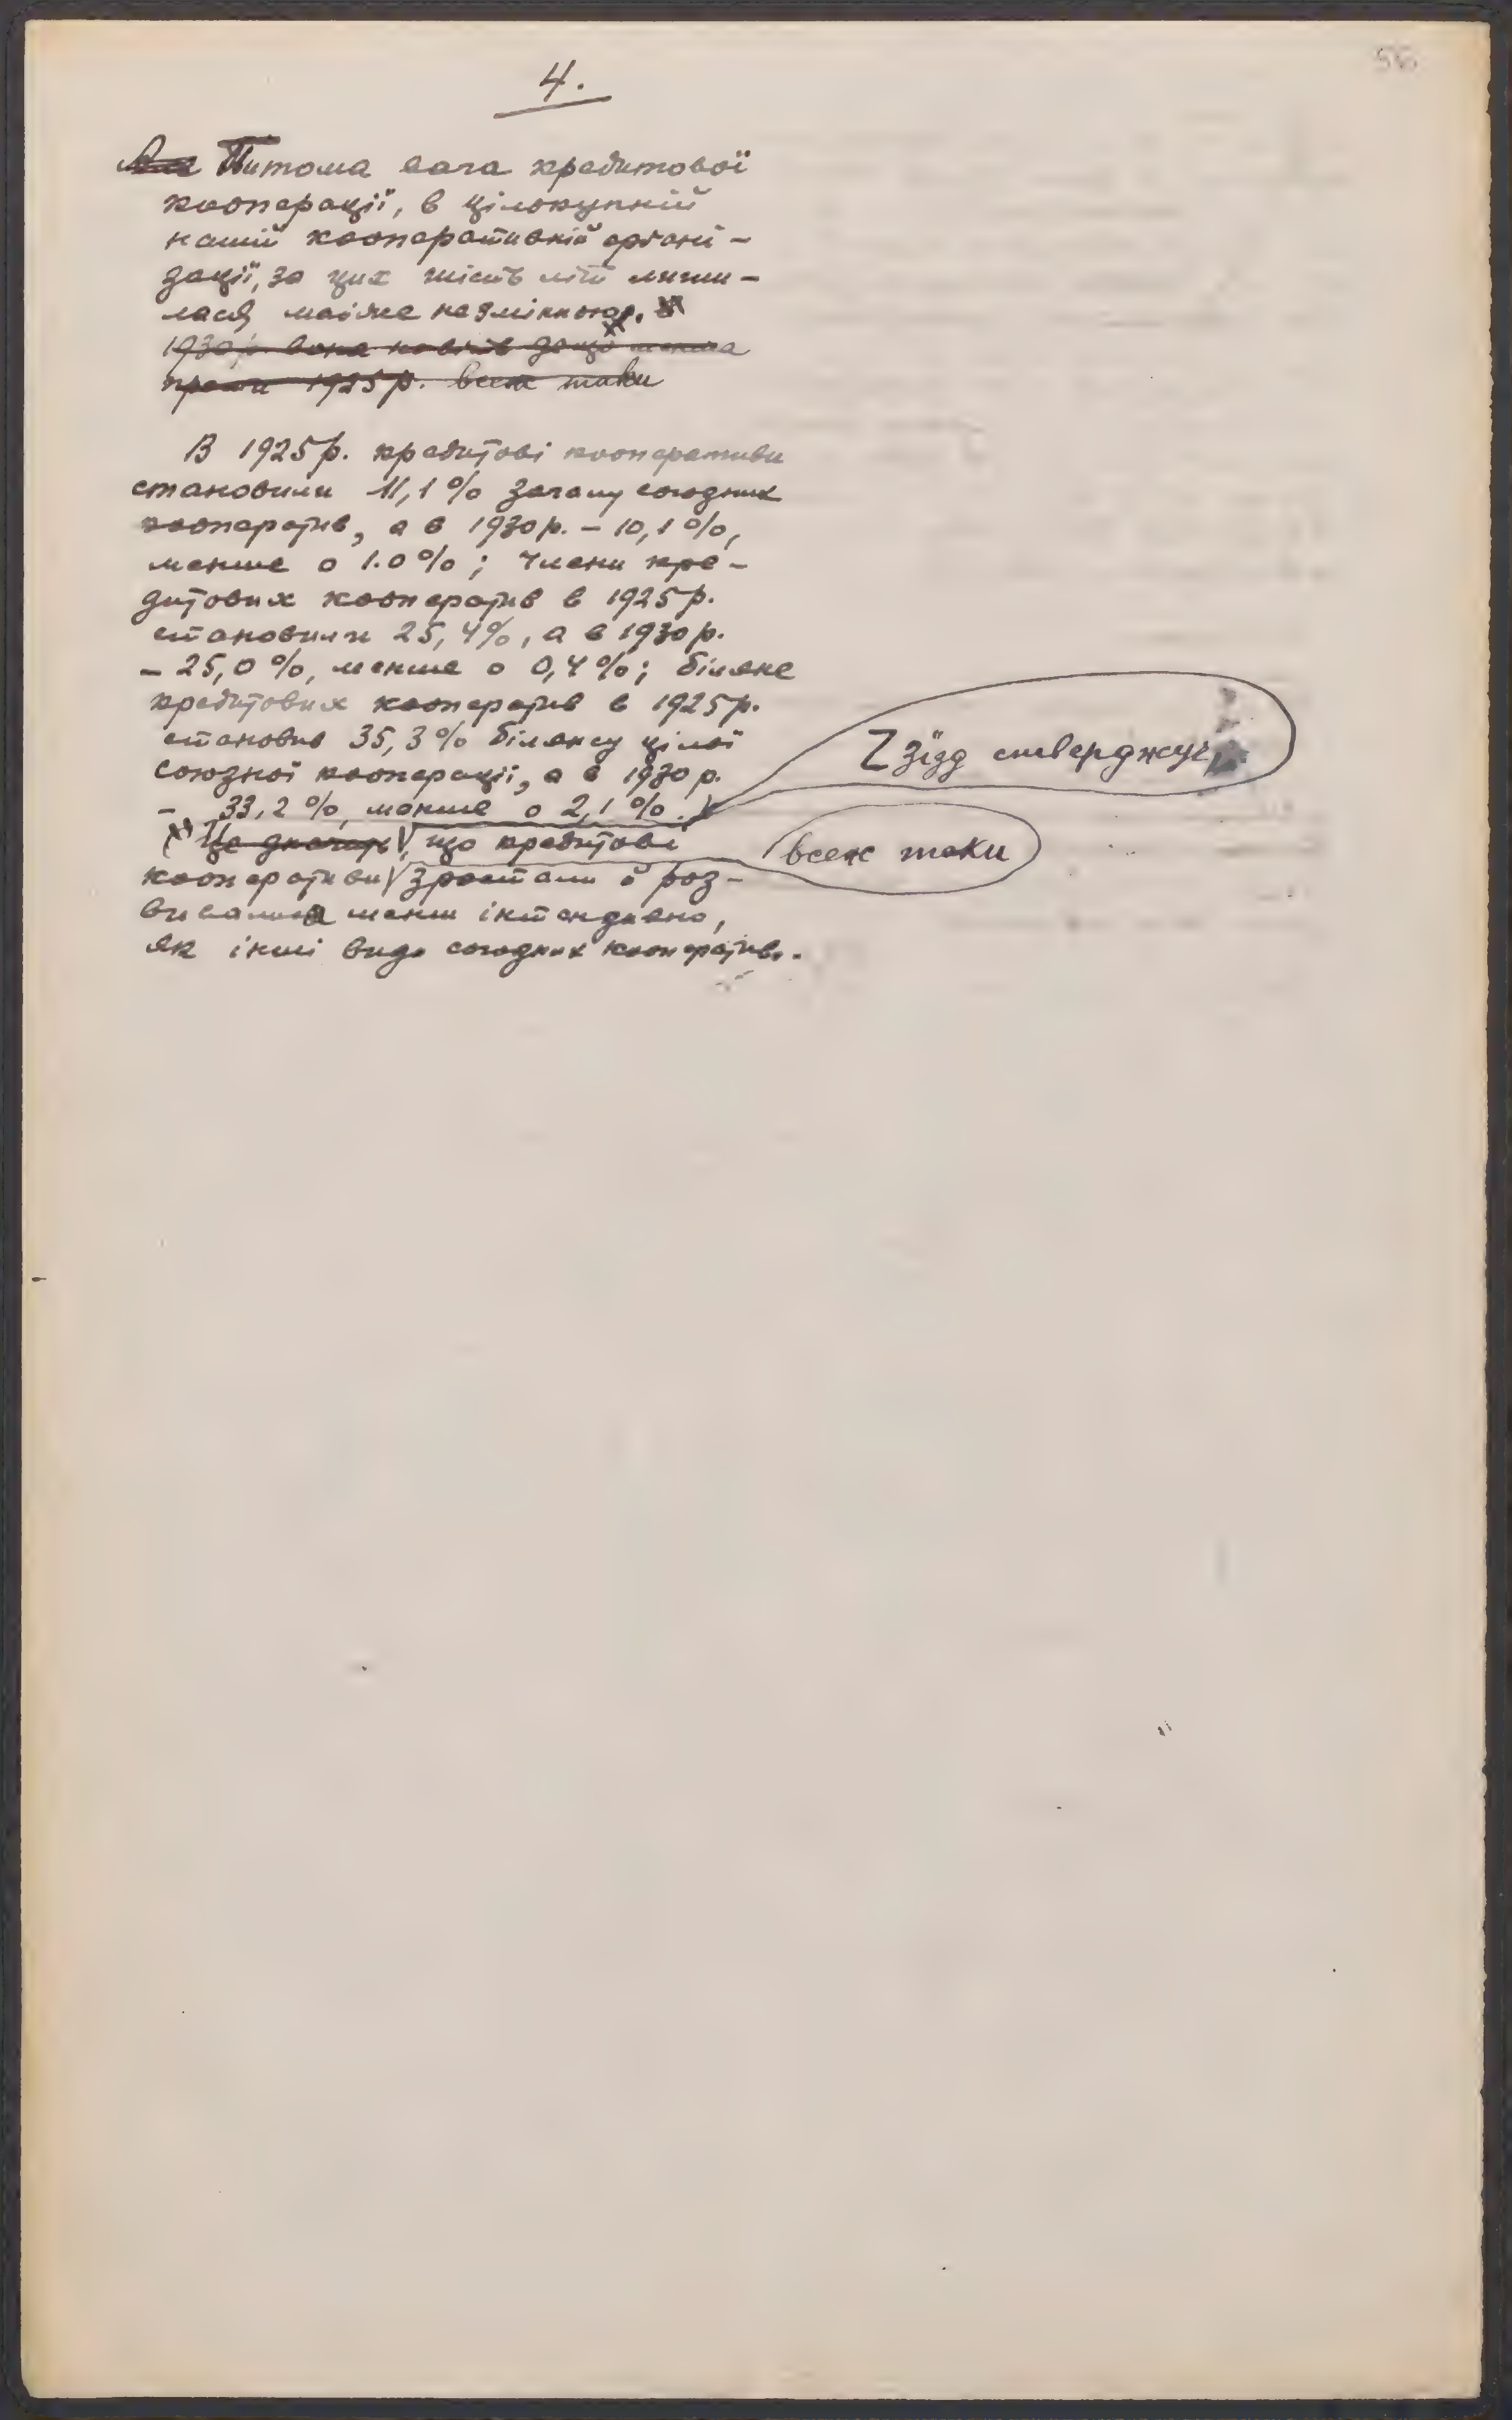 56
4.
Питома вага кредитової
кооперації, в цілокупній
нашій кооперативній органі-
зації, за цих шість літ лиши-
лася майже незмінною. В
1930 р. вона навіть дещо менша
проти 1925 р. всеж таки
В 1925 р. кредитові кооперативи
становили 11,1% загалу союзних
кооператив, а в 1930 р. – 10,1%,
менше о 1.0%; члени кре-
дитових кооператив в 1925 р.
становили 25,4%, а в 1930 р.
– 25,0%, менше о 0,4%; білянс
кредитових кооператив в 1925 р.
становив 35,3% білянсу цілої
союзної кооперації, а в 1930 р.
– 33,2%, менше о 2,1%.
Зїзд стверджує,
Це значить, що кредитові
всеж таки
кооперативи зростали й роз-
вивалися менш інтензивно,
як інші види союзних кооператив.